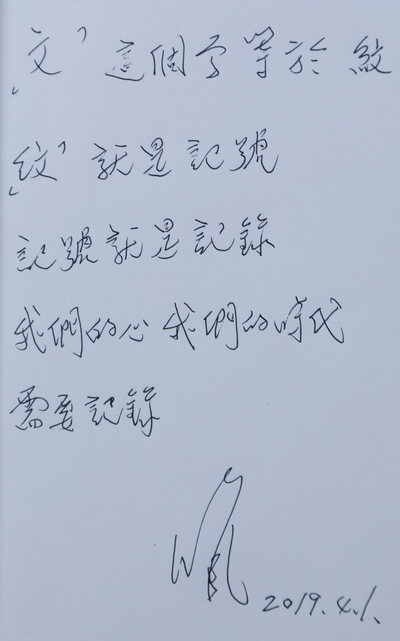 「文」這個字等於紋
「紋」就是記號
記號就是記錄
我們的心我們的時代
需要記錄
2019.4.1.